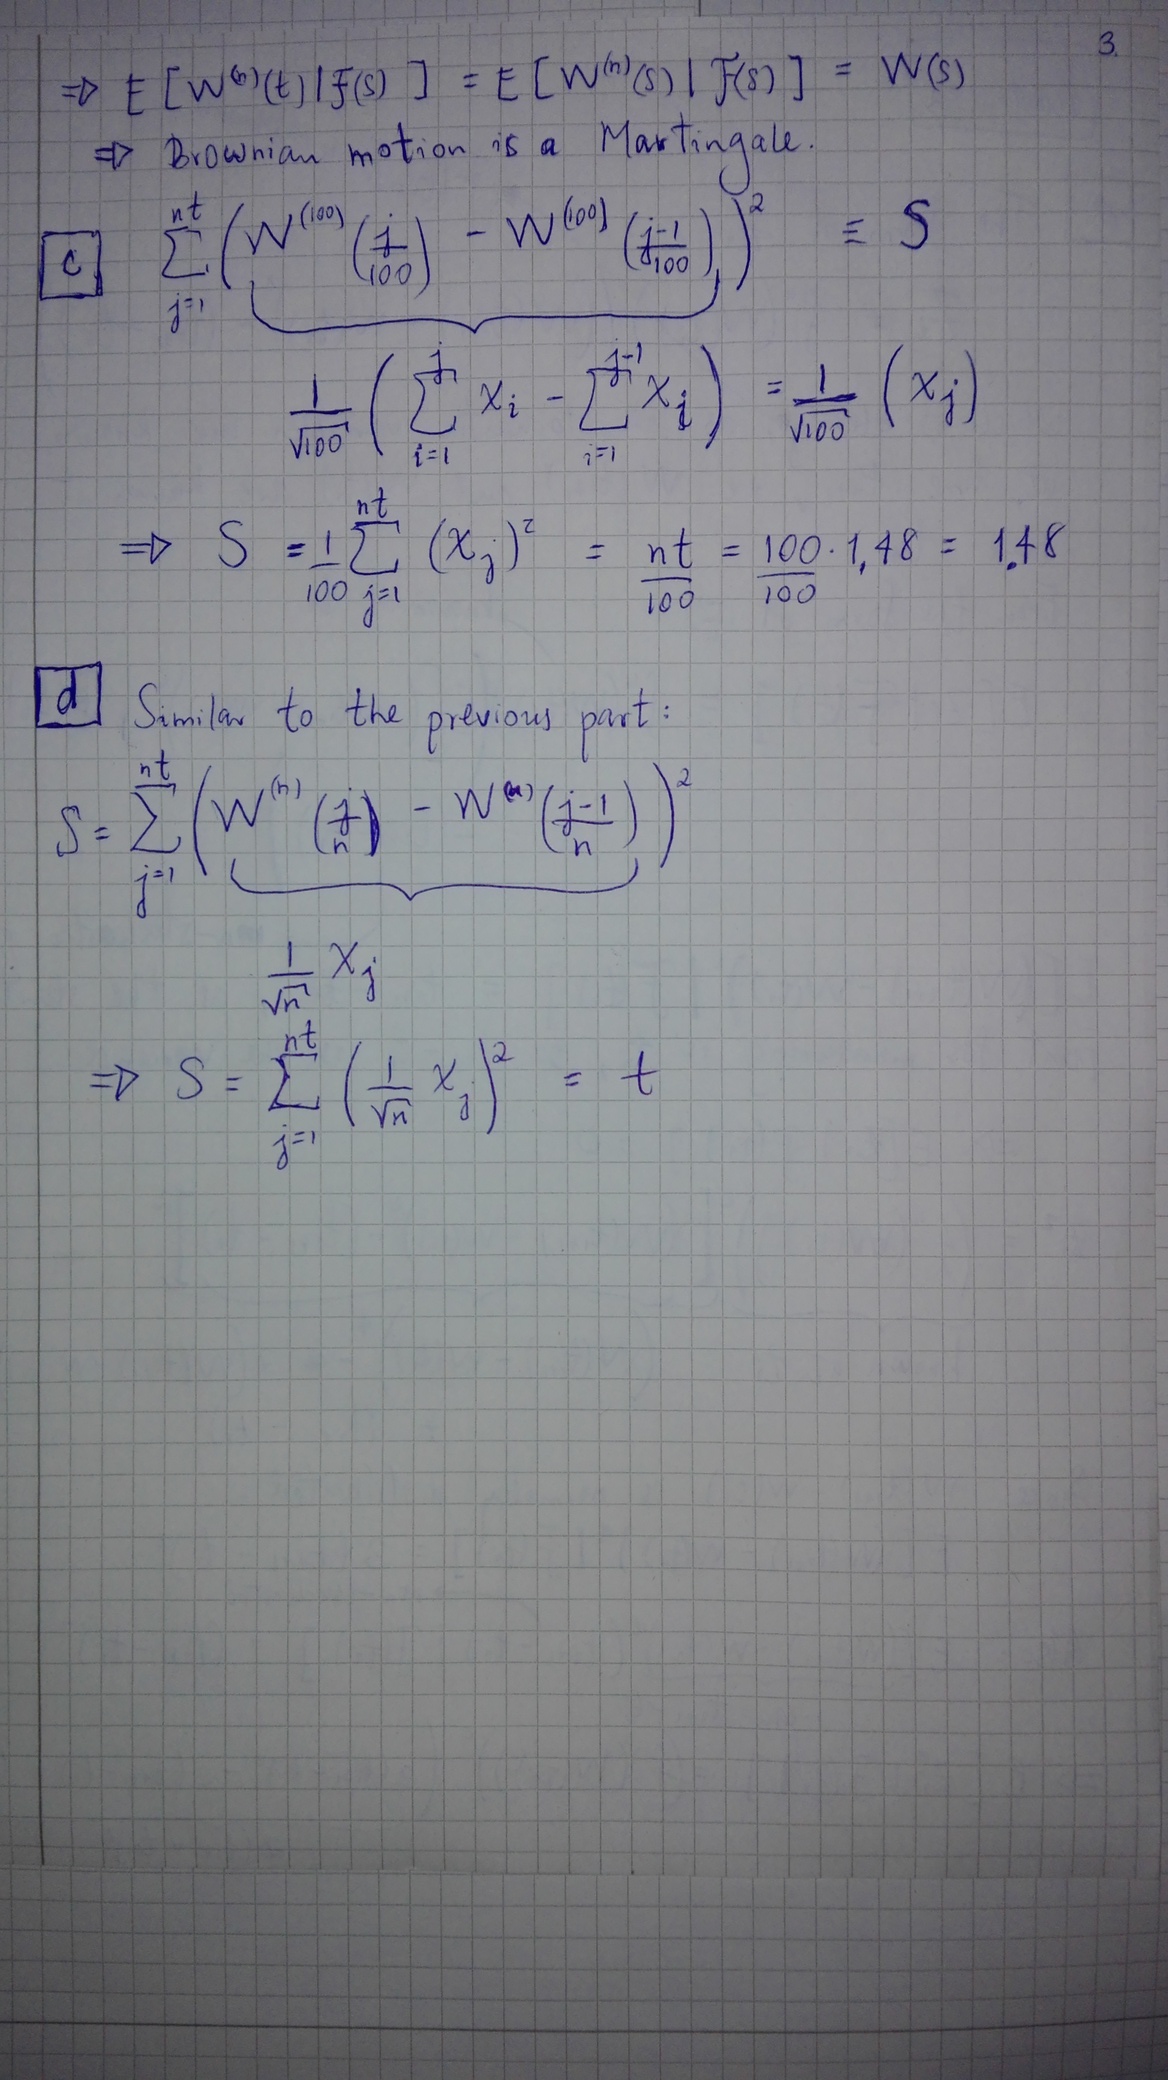 3.
⇒ E[W⁽ⁿ⁾(t)|F(s)] = E[W⁽ⁿ⁾(s)|F(s)] = W(s)
⇒ Brownian motion is a Martingale.
c ∑_{j=1}^{nt} (W^{(100)}(j/100) - W^{(100)}(j-1/100))² ≡ S
1/√100 (∑_{i=1}^{j} X_i - ∑_{i=1}^{j-1} X_j) = 1/√100 (X_j)
⇒ S = 1/100 ∑_{j=1}^{nt} (X_j)² = nt/100 = 100·1,48/100 = 1.48
d Similar to the previous part:
S = ∑_{j=1}^{nt} (W^{(n)}(j/n) - W^{(n)}(j-1/n))²
1/√n X_j
⇒ S = ∑_{j=1}^{nt} (1/√n X_j)² = t